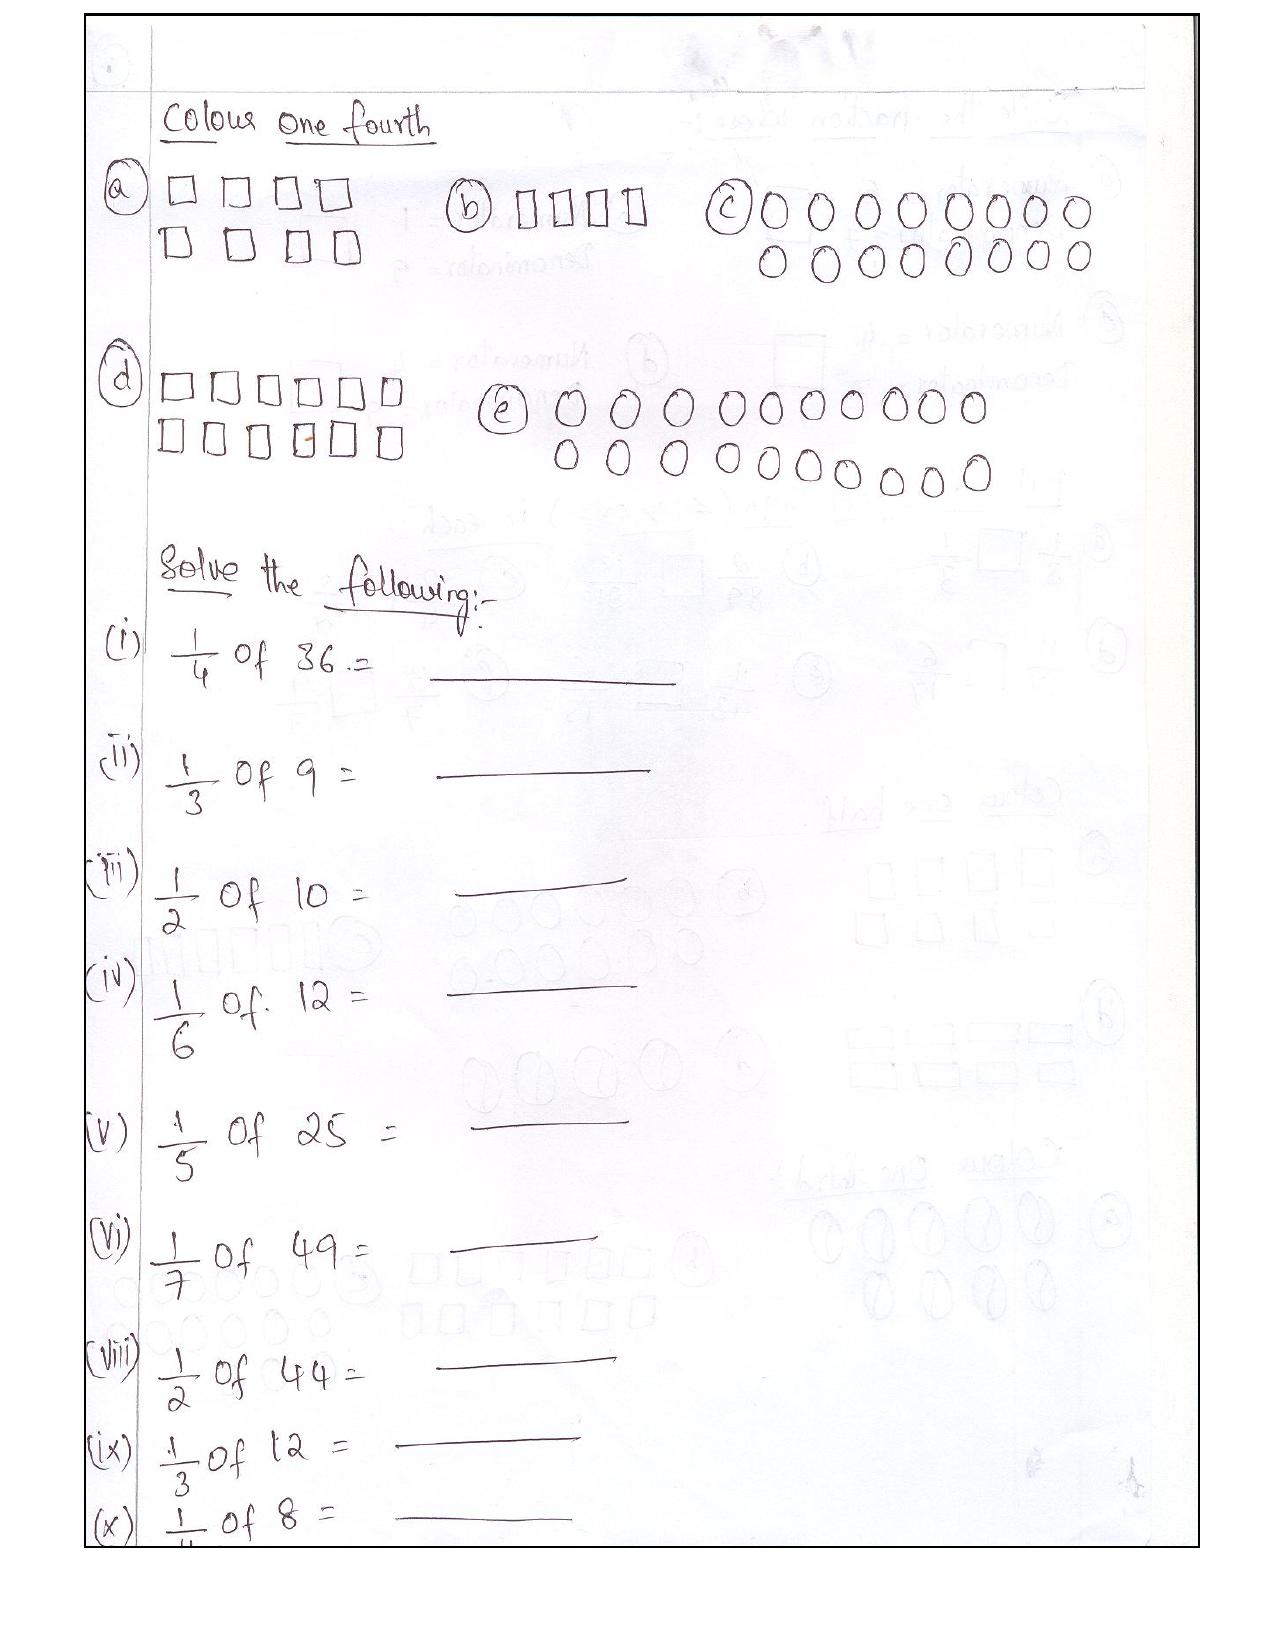 Colour one fourth
a b c
d e
Solve the following:-
(i) 1/4 of 36 =
(ii) 1/3 of 9 =
(iii) 1/2 of 10 =
(iv) 1/6 of. 12 =
(v) 1/5 of 25 =
(vi) 1/7 of 49 =
(viii) 1/2 of 44 =
(ix) 1/3 of 12 =
(x) 1/4 of 8 =